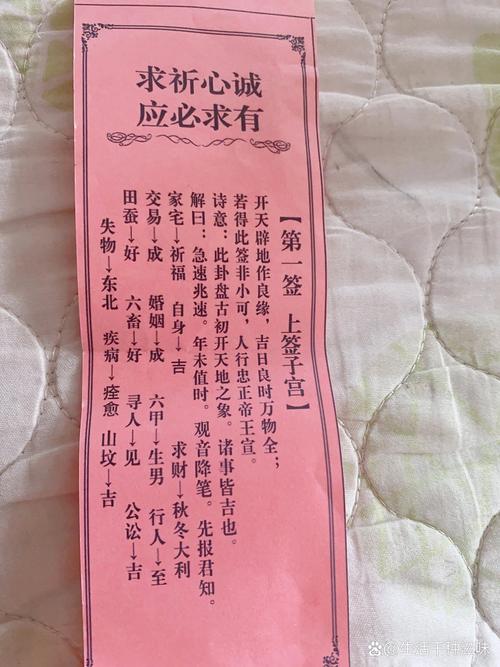 诚心祈求
有求必应
【第一签 上签子宫】
开天辟地作良缘，吉日良时万物全；
若得此签非小可，人行忠正帝王宣。
诗意：此卦盘古初开天地之象。诸事皆吉也。
解曰：急速兆速。年未值时。观音降笔。先报君知。
家宅→祈福 自身→吉 求财→秋冬大利
交易→成 婚姻→成 六甲→生男 行人→至
田蚕→好 六畜→好 寻人→见 公讼→吉
失物→东北 疾病→痊愈 山坟→吉
生活千种滋味